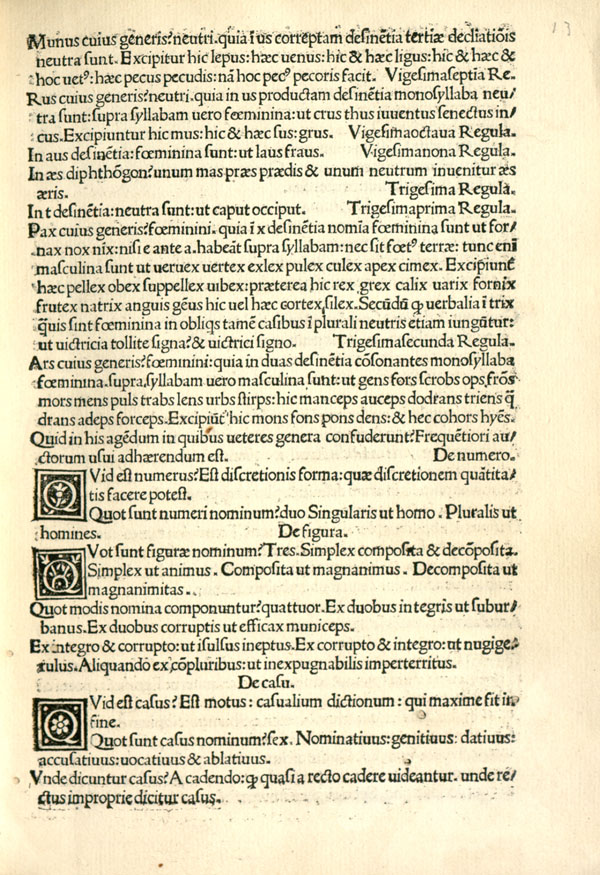 13
Munus cuius generis?neutri.quia i us correptam desinētia tertiæ declatiōis
neutra sunt. Excipitur hic lepus:hæc uenus:hic & hæc ligus:hic & hæc &
hoc uetꝰ:hæc pecus pecudis:nā hoc pecꝰ pecoris facit. Vigesimaseptia Re.
Rus cuius generis?neutri.quia in us productam desinētia monosyllaba neu/
tra sunt:supra syllabam uero fœminina:ut crus thus iuuentus senectus in/
cus.Excipiuntur hic mus:hic & hæc sus:grus. Vigesimaoctaua Regula.
In aus desinētia:fœminina sunt:ut laus fraus. Vigesimanona Regula.
In æs diphthōgon?unum mas præs prædis & unum neutrum inuenitur æs
æris. Trigesima Regula.
In t desinētia:neutra sunt:ut caput occiput. Trigesimaprima Regula.
Pax cuius generis?fœminini.quia i x desinētia nomīa fœminina sunt ut for/
nax nox nix:nisi e ante a.habeāt supra syllabam:nec sit fœtꝰ terræ:tunc enī
masculina sunt ut ueruex uertex exlex pulex culex apex cimex. Excipiunt̄
hæc pellex obex suppellex uibex:præterea hic rex grex calix uarix fornix
frutex natrix anguis genus hic uel hæc cortex silex. Secūdū ꝙ uerbalia ī trix
q̄uis sint fœminina in obliqs tamē casibus ī plurali neutris etiam iungūtur:
ut uictricia tollite signa?& uictrici signo. Trigesimasecunda Regula.
Ars cuius generis?fœminini:quia in duas desinētia cōsonantes monosyllaba
fœminina.supra syllabam uero masculina sunt:ut gens fors scrobs ops frōs
mors mens puls trabs lens urbs stirps:hic manceps auceps dodrans triens q̄
drans adeps forceps.Excipiūt̄ hic mons fons pons dens:& hec cohors hyēs.
Quid in his agēdum in quibus ueteres genera confuderunt?Frequētiori au/
ctorum usui adhærendum est. De numero.
QVid est numerus?Est discretionis forma:quæ discretionem quātita/
tis facere potest.
Quot sunt numeri nominum?duo Singularis ut homo. Pluralis ut
homines. De figura.
QVot sunt figuræ nominum?Tres.Simplex composita & decōposita.
Simplex ut animus. Composita ut magnanimus. Decomposita ut
magnanimitas.
Quot modis nomina componuntur?quattuor.Ex duobus in tegris ut subur/
banus.Ex duobus corruptis ut efficax municeps.
Ex integro & corrupto:ut isulsus ineptus.Ex corrupto & integro:ut nugige/
rulus.Aliquando ex cōpluribus:ut inexpugnabilis imperterritus.
De casu.
QVid est casus?Est motus:casualium dictionum:qui maxime fit in/
fine.
Quot sunt casus nominum?sex. Nominatiuus:genitiuus:datiuus:
accusatiuus:uocatiuus & ablatiuus.
Vnde dicuntur casus?A cadendo:ꝙ quasi a recto cadere uideantur.unde re/
ctus improprie dicitur casus.